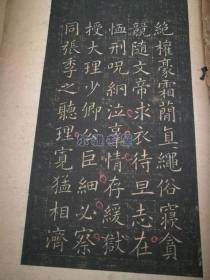 絶權豪霜蕳直繩俗寢貪
競隨文帝求衣待旦志在
恤刑呪網泣辜情存緩獄
授大理少卿公巨細必察
同張季之聽理寛猛相濟